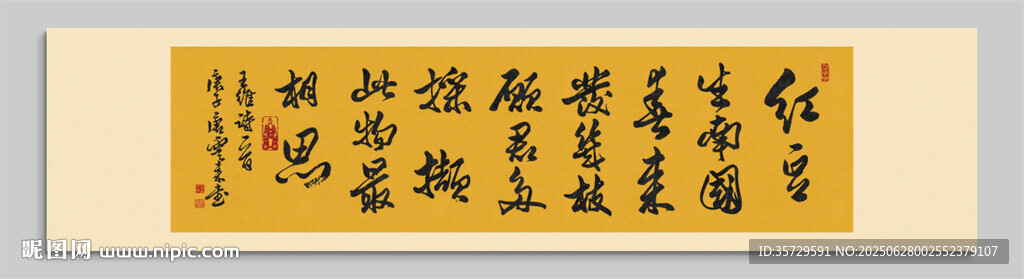 紅豆
生南國
春来
發幾枝
願君多
採擷
此物最
相思
王維詩一首
庚子唐雲来書
昵图网 www.nipic.com
ID:35729591 NO:20250628002552379107